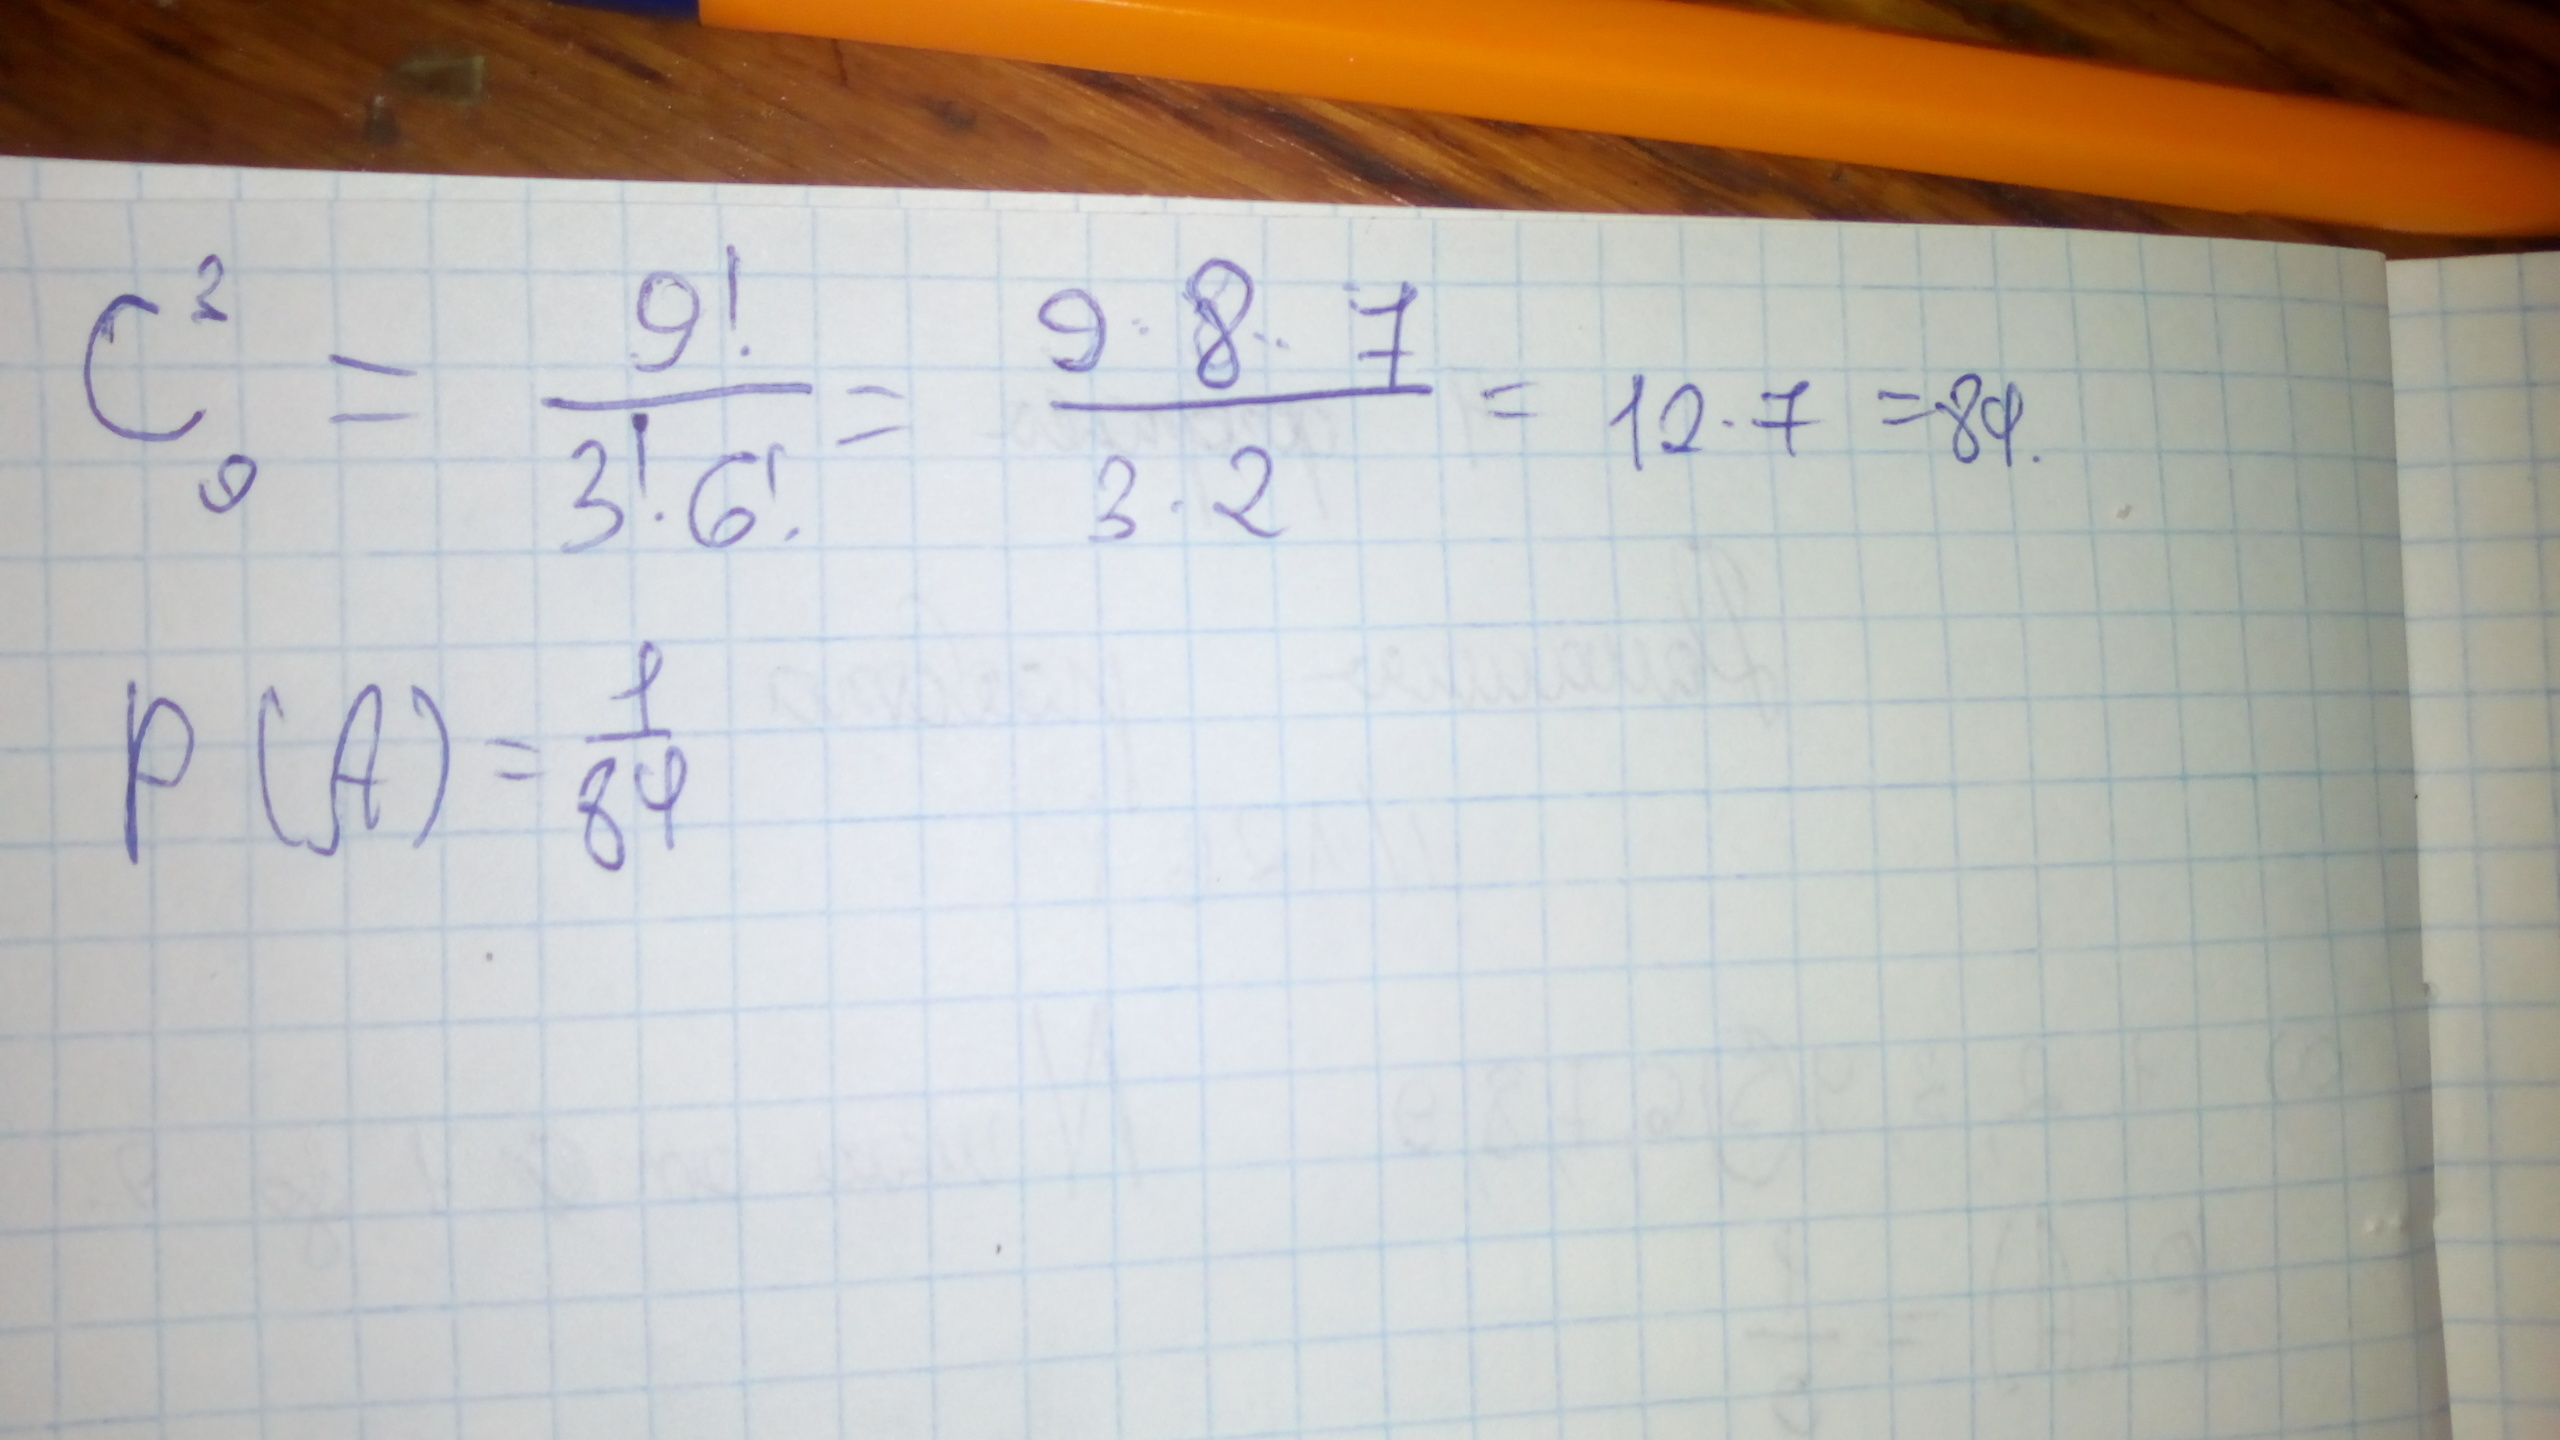 C₉³ = 9!/(3!·6!) = (9·8·7)/(3·2) = 12·7 = 84.
P(A) = 1/84